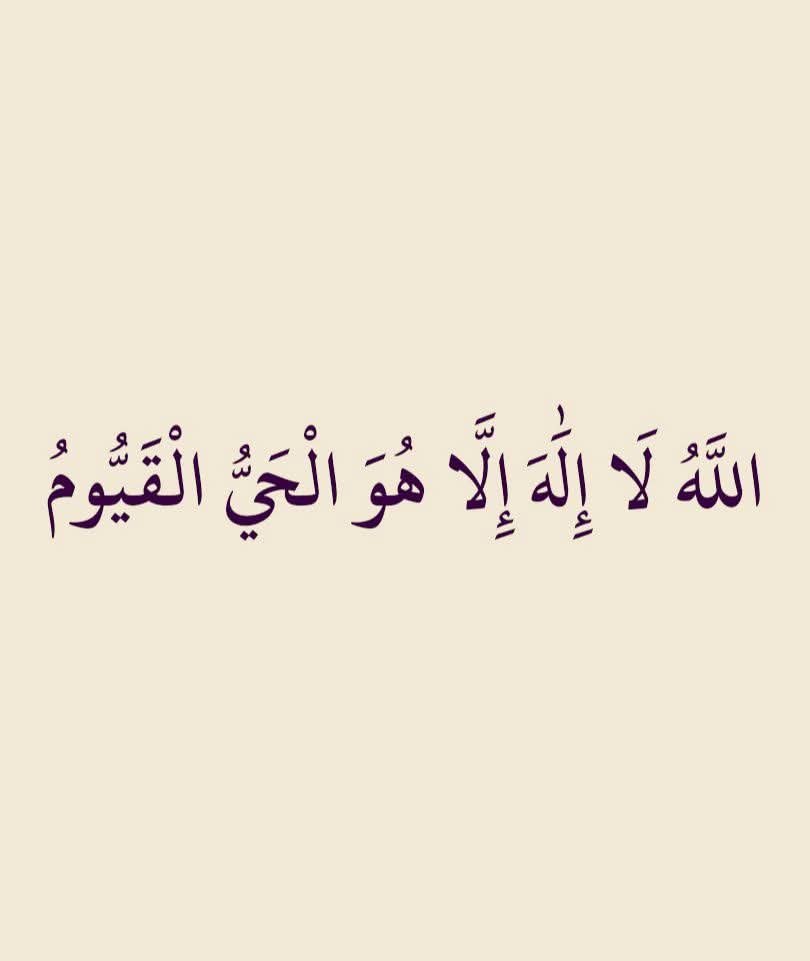 اللَّهُ لَا إِلَٰهَ إِلَّا هُوَ الْحَيُّ الْقَيُّومُ